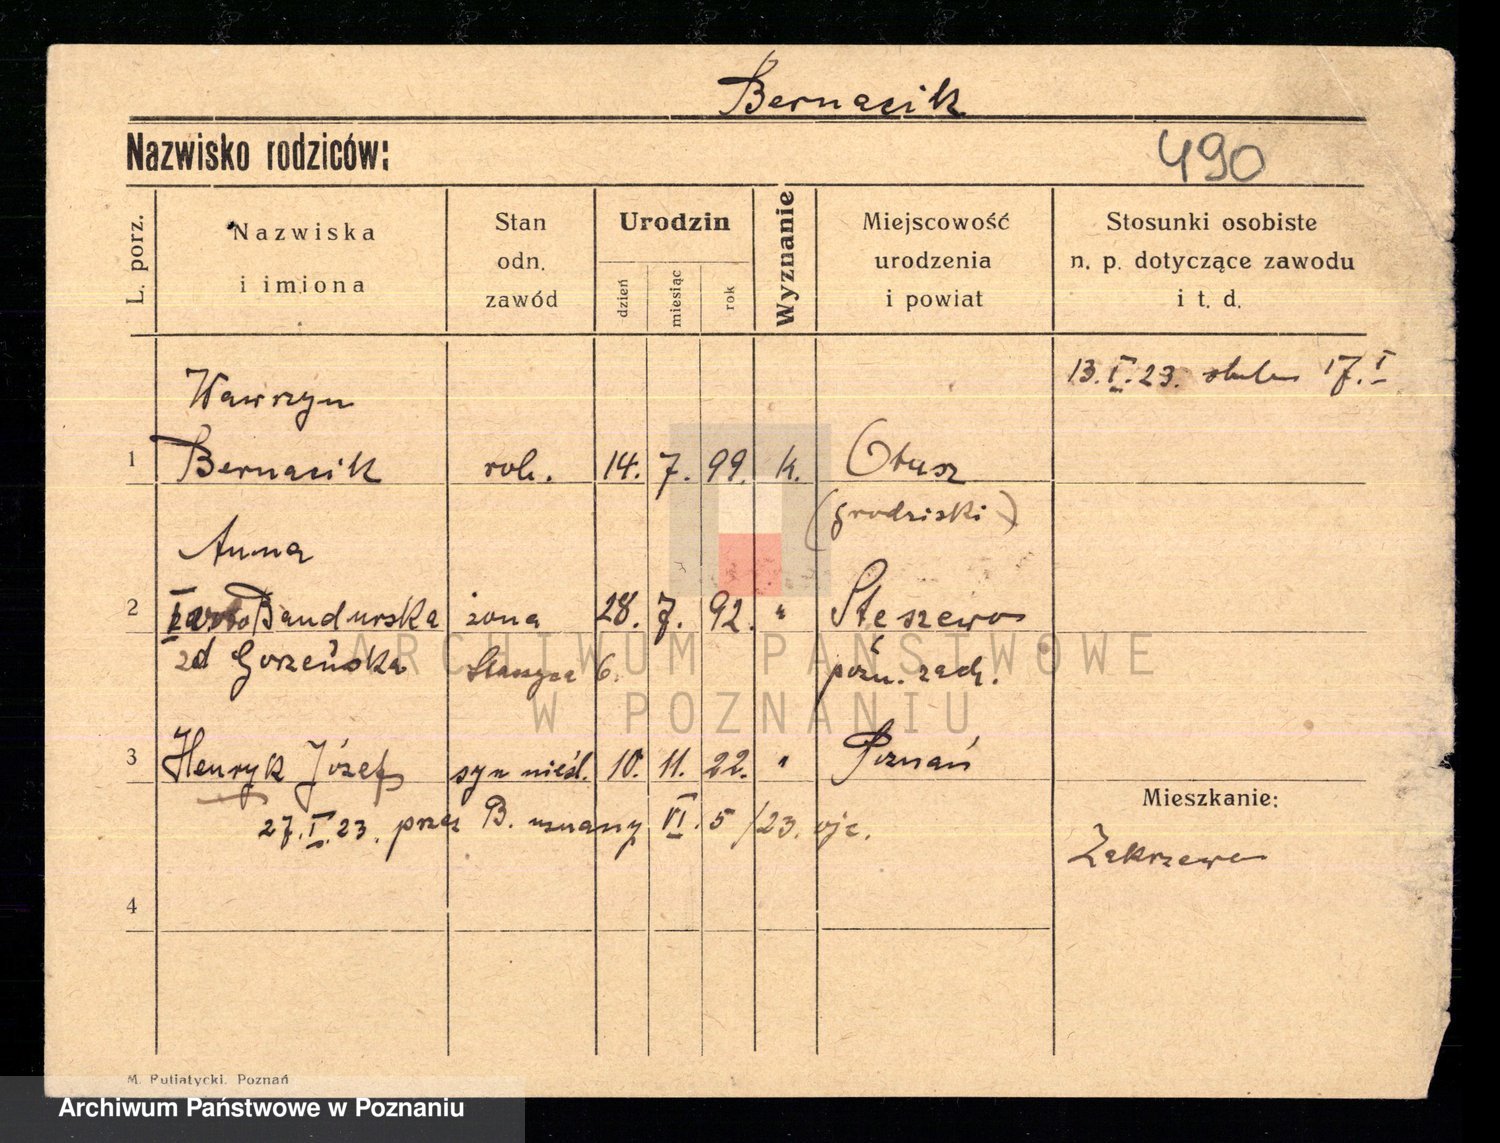 Bernacik
Nazwisko rodziców:
490
L. porz.
Nazwiska
i imiona
Stan
odn.
zawód
Urodzin
dzień
miesiąc
rok
Wyznanie
Miejscowość
urodzenia
i powiat
Stosunki osobiste
n. p. dotyczące zawodu
i t. d.
Wawrzyn 13.I.23. 17.I
1 Bernacik rob. 14. 7. 99. k. Otusz
(grodziski)
Anna
2 Bandurska żona 28. 7. 92. " Stęszewo
2d Gorzeńska Staszyca 6. pozn. zach.
3 Henryk Józef syn nieśl. 10. 11. 22. " Poznań
27.I.23. przez B. uznany VI.5/23. ojc.
Mieszkanie:
Zakrzewo
4
M. Putiatycki, Poznań
ARCHIWUM PAŃSTWOWE
W POZNANIU
Archiwum Państwowe w Poznaniu